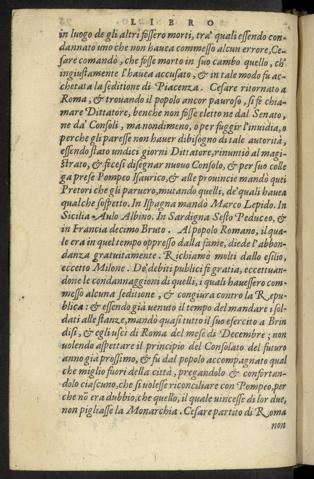 LIBRO
in luogo de gli altri fossero morti, tra' quali essendo con
dannato uno che non hauea commesso alcun errore, Ce-
sare comandò, che fosse morto in suo cambo quello, ch'
ingiustamente l'hauea accusato, & in tale modo fu ac-
chetata la seditione di Piacenza. Cesare ritornato a
Roma, & trouando il popolo ancor pauroso, si fè chia-
mare Dittatore, benche non fosse eletto ne dal Senato,
ne da' Consoli, ma nondimeno, o per fuggir l'inuidia, o
perche gli paresse non hauer dibisogno di tale autorità,
essendo stato undici giorni Dittatore, rinuntiò al magi-
strato, & fecesi disegnar nuouo Consolo, & per suo colle
ga prese Pompeo Isaurico, & alle prouincie mandò quei
Pretori che gli paruero, mutando quelli, de' quali hauea
qualche sospetto. In Ispagna mandò Marco Lepido. In
Sicilia Aulo Albino. In Sardigna Sesto Peduceo, &
in Francia decimo Bruto. Al popolo Romano, il qua-
le era in quel tempo oppresso dalla fame, diede l'abbon-
danza gratuitamente. Richiamò molti dallo esilio,
eccetto Milone. De' debiti publici fè gratia, eccettuan-
done le condannaggioni di quelli, i quali hauessero com-
messo alcuna seditione, & congiura contro la Repu-
blica: & essendo già venuto il tempo del mandare i sol-
dati alle stanze, mandò quasi tutto il suo esercito a Brin
disi, & egli uscì di Roma del mese di Decembre; non
uolendo aspettare il principio del Consolato del futuro
anno già prossimo, & fu dal popolo accompagnato qual
che miglio fuori della città, pregandolo & confortan-
dolo ciascuno, che si uolesse riconciliare con Pompeo, per
che nō era dubbio, che quello, il quale uincesse di lor due,
non pigliasse la Monarchia. Cesare partito di Roma
non